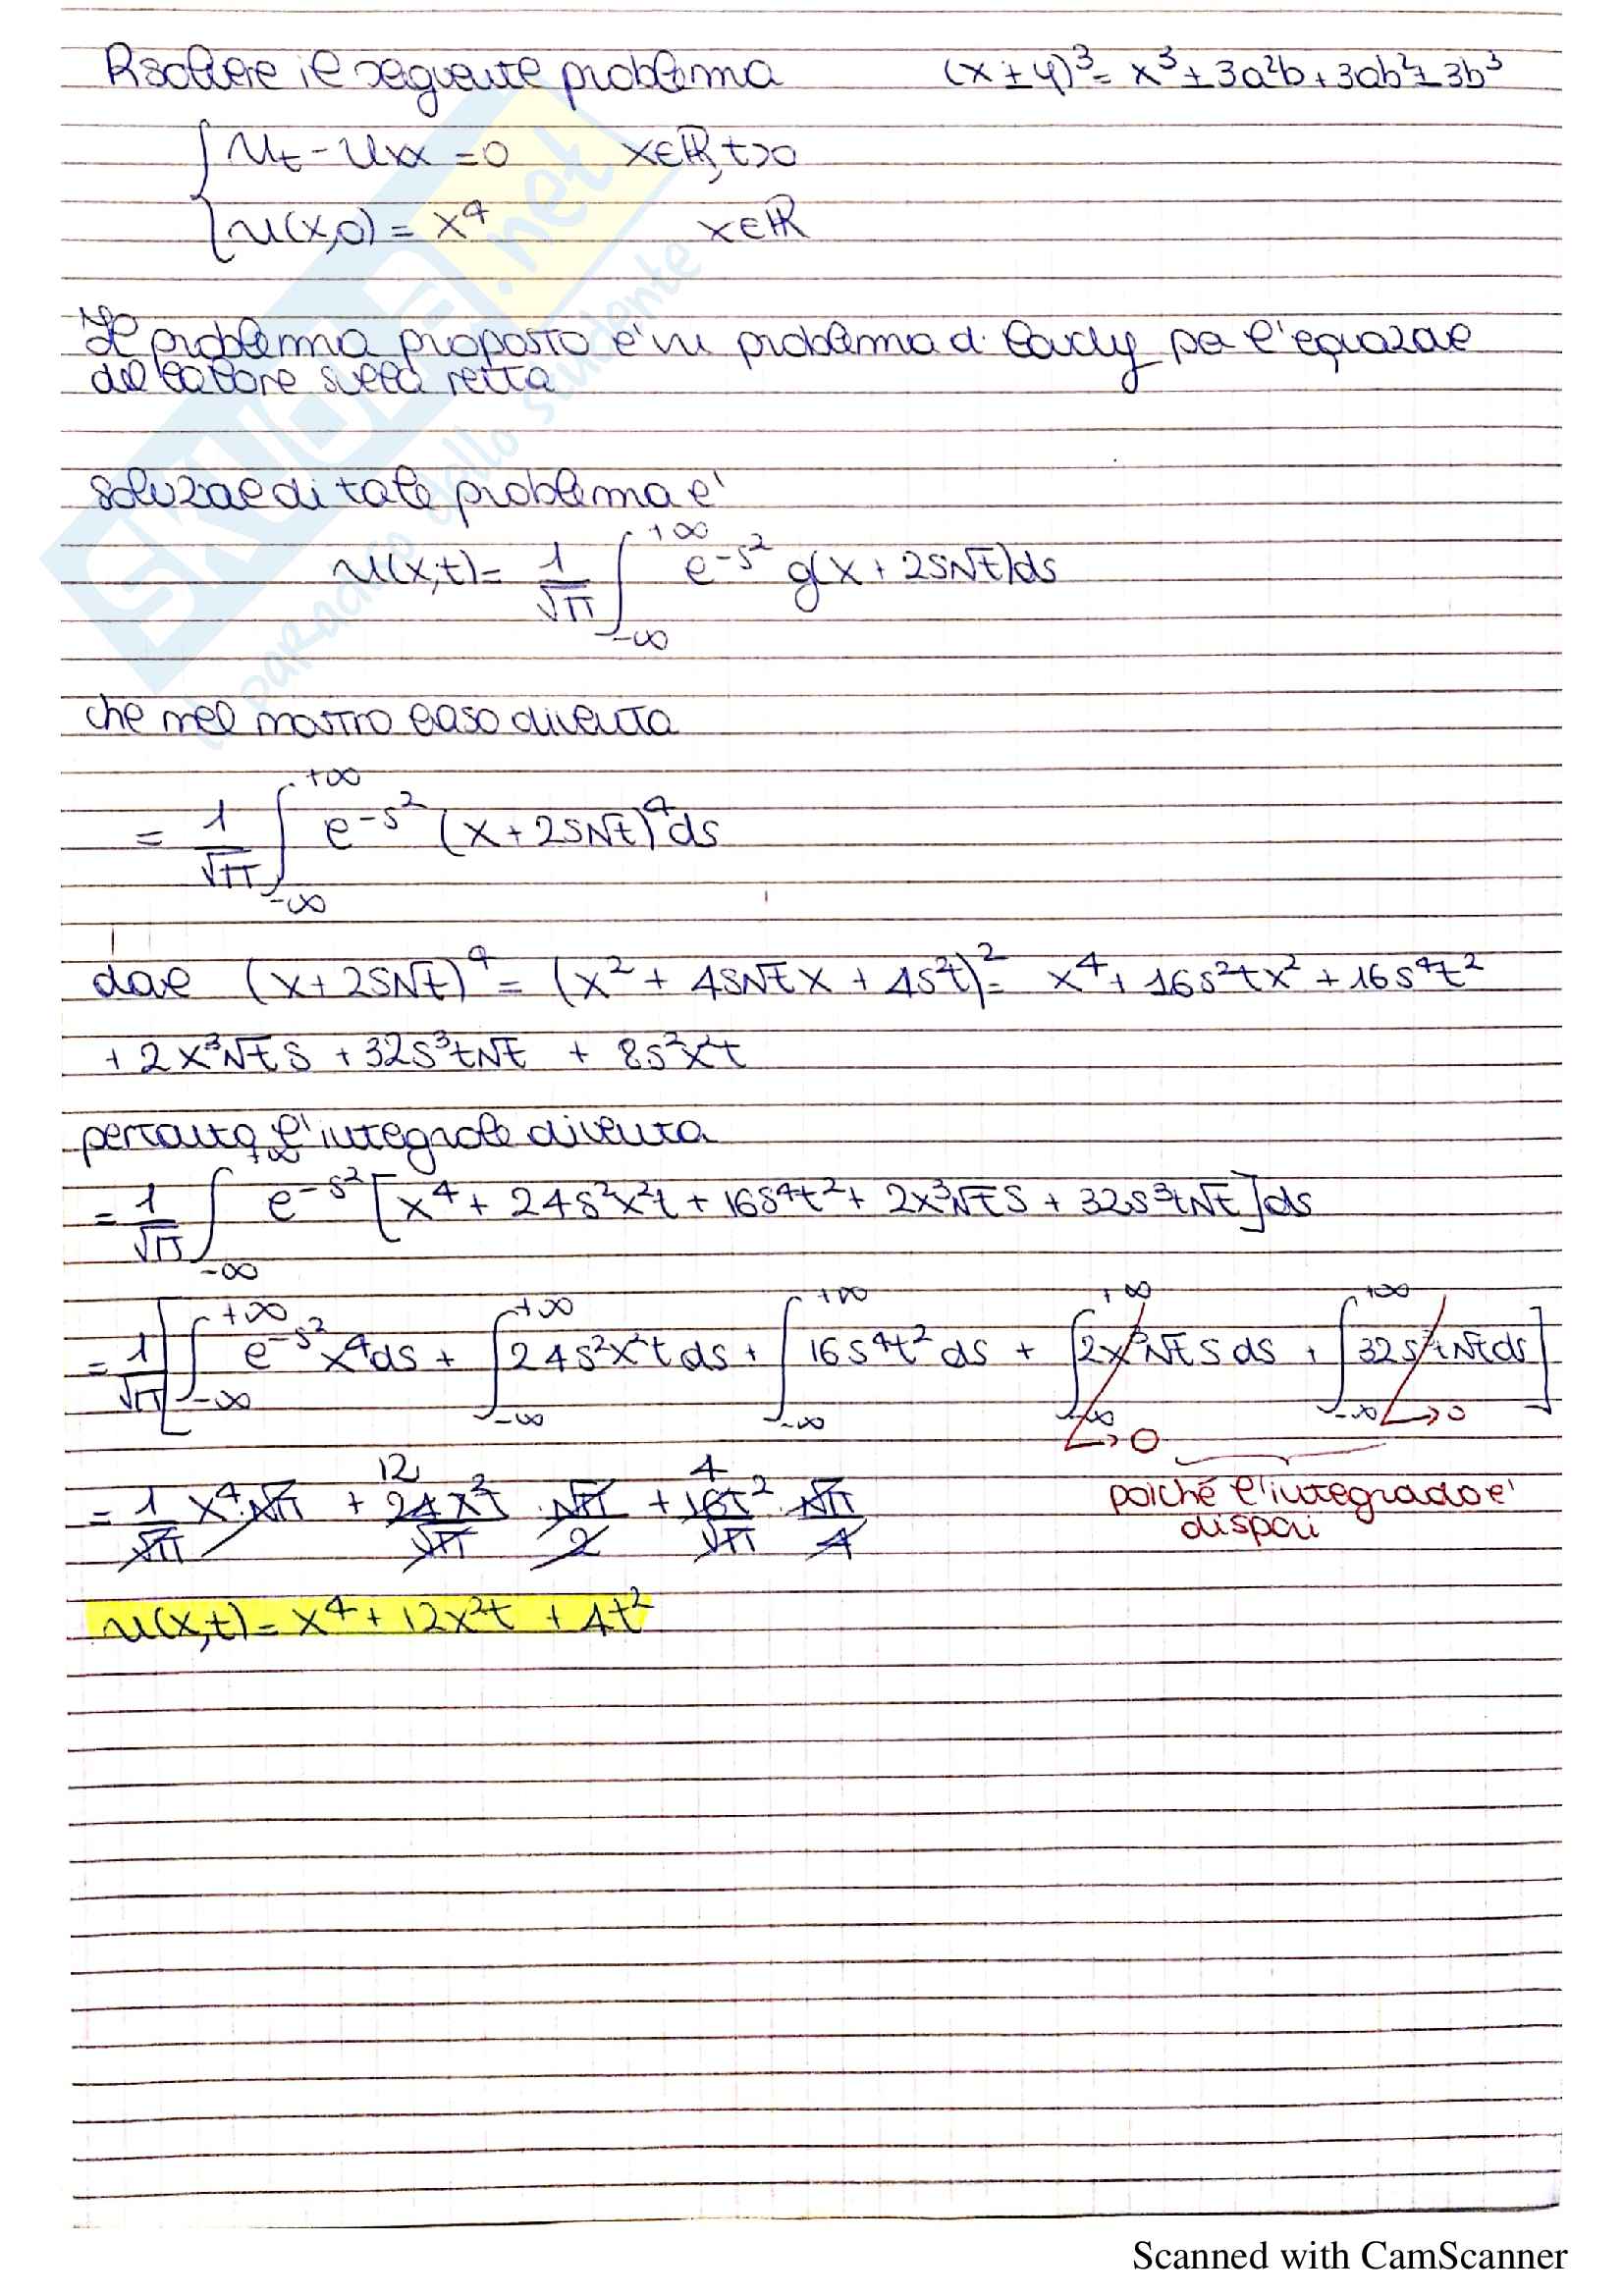 Risolvere il seguente problema (x ± y)³ = x³ ± 3a²b + 3ab² ± 3b³
{ u_t - u_xx = 0 x∈ℝ, t>0
{ u(x,0) = x⁴ x∈ℝ
Il problema proposto e' un problema di Cauchy per l'equazione
del calore sulla retta
soluzione di tale problema e'
u(x,t) = 1/√π ∫_{-∞}^{+∞} e^{-s²} g(x + 2s√t) ds
che nel nostro caso diventa
= 1/√π ∫_{-∞}^{+∞} e^{-s²} (x + 2s√t)⁴ ds
dove (x + 2s√t)⁴ = (x² + 4s√t x + 4s²t)² = x⁴ + 16s²tx² + 16s⁴t²
+ 2x³√t s + 32s³t√t + 8s²x²t
pertanto l'integrale diventa
= 1/√π ∫_{-∞}^{+∞} e^{-s²} [x⁴ + 24s²x²t + 16s⁴t² + 2x³√t s + 32s³t√t] ds
= 1/√π [∫_{-∞}^{+∞} e^{-s²} x⁴ ds + ∫_{-∞}^{+∞} 24s²x²t ds + ∫_{-∞}^{+∞} 16s⁴t² ds + ∫_{-∞}^{+∞} 2x³√t s ds + ∫_{-∞}^{+∞} 32s³t√t ds]
→ 0 → 0
12 4
= 1/√π x⁴·√π + 24x²t/√π · √π/2 + 16t²/√π · √π/4
poiché l'integrando e'
dispari
u(x,t) = x⁴ + 12x²t + 4t²
SKUOLA.net
il paradiso dello studente
Scanned with CamScanner